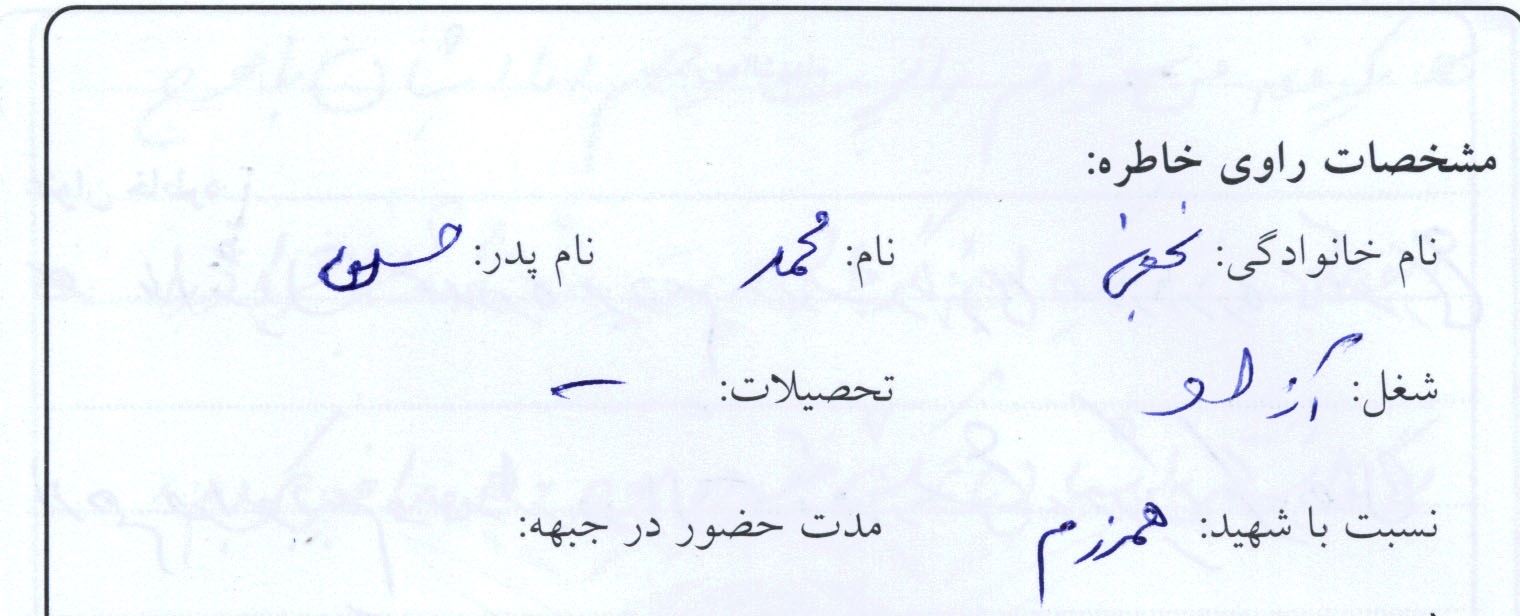 مشخصات راوی خاطره:
نام خانوادگی: نجفی نام: محمد نام پدر: حسین
شغل: آزاد تحصیلات: -
نسبت با شهید: همرزم مدت حضور در جبهه: